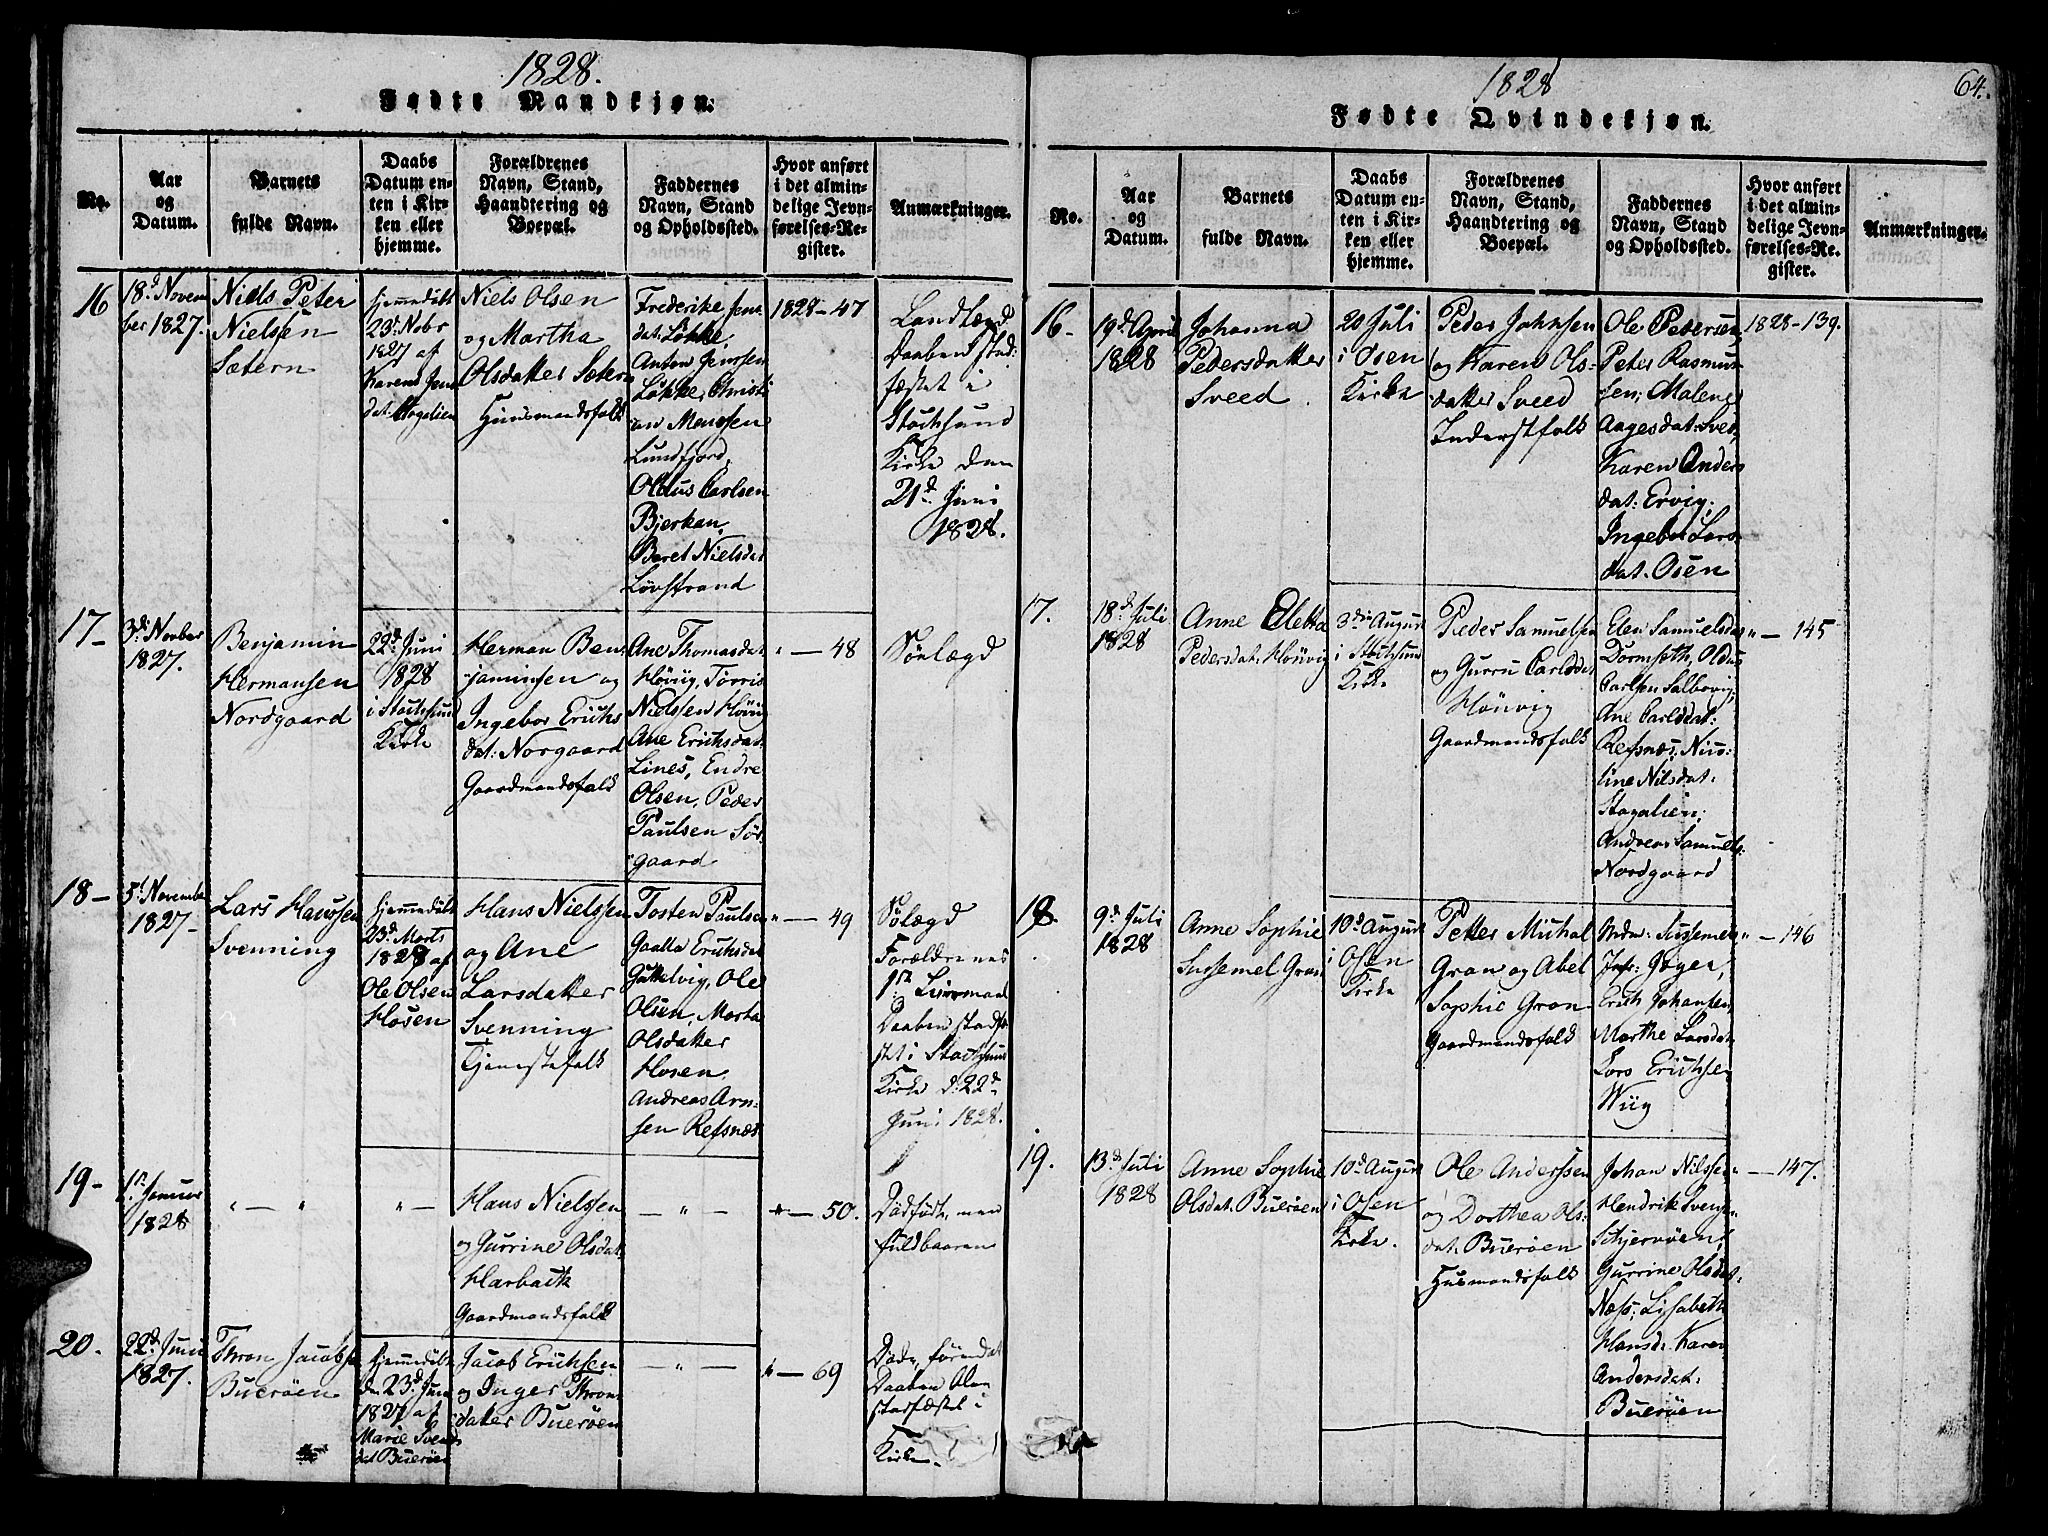 1828.
Fødte Mandkjøn.
No.
Aar
og
Datum.
Barnets
fulde Navn.
Daabs
Datum en-
ten i Kir-
ken eller
hjemme.
Forældrenes
Navn, Stand,
Haandtering og
Boepæl.
Faddernes
Navn, Stand
og Opholdssted.
Hvor anført
i det almin-
delige Jevn-
førelses-Re-
gister.
Anmærkninger.
16
18d Novem
ber 1827.
Niels Peter
Nielsen
Sætern
hjemmedøbt
23d Nobr
1827 af
Karen Jens
dat:
Niels Olsen
og Martha
Olsdatter Sætern
Huusmandsfolk
Frederike Jens
dat: Løkke,
Anton Jenssen
Løkke, Christi
an Monssen
Lundfjord,
Oldus Carlsen
Bjerkan,
Beret Nielsdat
Løvstrand
1828-47
Landlægd
Daaben stad:
fæstet i
Stochsund
Kirke den
21d Juni
1828.
17-
3di Novber
1827.
Benjamin
Hermansen
Nordgaard
22d Juni
1828
i Stochsund
Kirke
Herman Ben
jaminsen og
Ingebor Erichs
dat: Norgaard
Gaardmandsfolk
Ane Thomasdat
Høviig, Torris
Nielssen Høviig
Ane Erichsdat
Lines, Endre
Olsen, Peder
Paulsen Sør
gaard
" - 48
Sølægd
18-
5t Novembr
1827-
Lars Hanssen
Svenning
hjemmedøbt
23d Marts
1828 af
Ole Olsen
Hosen
Hans Nielssen
og Ane
Larsdatter
Svenning
Tjenestefolk
Tosten Paulsen
Gaalla Erichsdat
Guttelvig, Ole
Olsen, Marta
Olsdatter
Hosen
Andreas Arn-
sen Refsnæs
" - 49
Sølægd
Forældrenes
1ste Leiermaal
Daaben stadfæ
stet i Stochsund
Kirke d: 22d
Juni 1828.
19-
1ste Januar
1828
" - "
" -
Hans Nielssen
og Gurrine Olsdat
Harbach
Gaardmandsfolk
- " -
" - 50.
Dødfødt, men
fuldbaaren
20.
22d Juni
1827.
Thron Jacobsen
Buerøen
hjemmedøbt
den 23d Juni
1827 af
Marie Svends
dat Buerøen
Jacob Erichsen
og Inger Thron
datter Buerøen
- " -
" - 69
Døde, førend
Daaben blev
stadfæstet i
Kirken.
1828
64.
Fødte Qvindekjøn.
No.
Aar
og
Datum.
Barnets
fulde Navn.
Daabs
Datum en-
ten i Kir-
ken eller
hjemme.
Forældrenes
Navn, Stand,
Haandtering og
Boepæl.
Faddernes
Navn, Stand
og Opholdssted.
Hvor anført
i det almin-
delige Jevn-
førelses-Re-
gister.
Anmærkninger.
16-
19d April
1828
Johanna
Pedersdatter
Sveed
20 Juli
i Osen
Kirke
Peder Johnsen
og Karen Ols-
datter Sveed
Inderstfolk
Ole Pedersen,
Peter Rasmus
sen, Malene
Aagesdat: Sved,
Karen Anders
dat: Ervig,
Ingebor Lars
dat: Osen
1828-139.
17.
18d Juli
1828
Anne Elebra
Pedersdat: Høivig
3die August
i Stochsund
Kirke
Peder Samuelsen
og Gurru Carlsdat
Høivig
Gaardmandsfolk
Elen Samuelsdat
Dormsøth, Oldus
Carlsen Salbovig,
Ane Carlsdat:
Refsnæs, Nico-
line Nilsdat:
Andreas Samuels:
Nordgaard
" - 145
18
9d Juli
1828
Anne Sophie
Sussemel Gran
10d August
i Osen
Kirke
Petter Michal
Gran og Abel
Sophie Gran
Gaardmandsfolk
Mdm: Sussemel
Erich Johansen,
Marthe Larsdat
Lars Erichsen
Wiig
" - 146
19.
13d Juli
1828
Anne Sophie
Olsdat: Buerøen
10d August
i Osen
Kirke.
Ole Anderssen
og Dorthea Ols-
dat: Buerøen
Husmandsfolk
Johan Nilssen
Hendrik Svensen
Schjervøen,
Gurrine Olsdat:
Næss, Lisabeth
Hansd: Karen
Andersdat:
Buerøen
- 147.